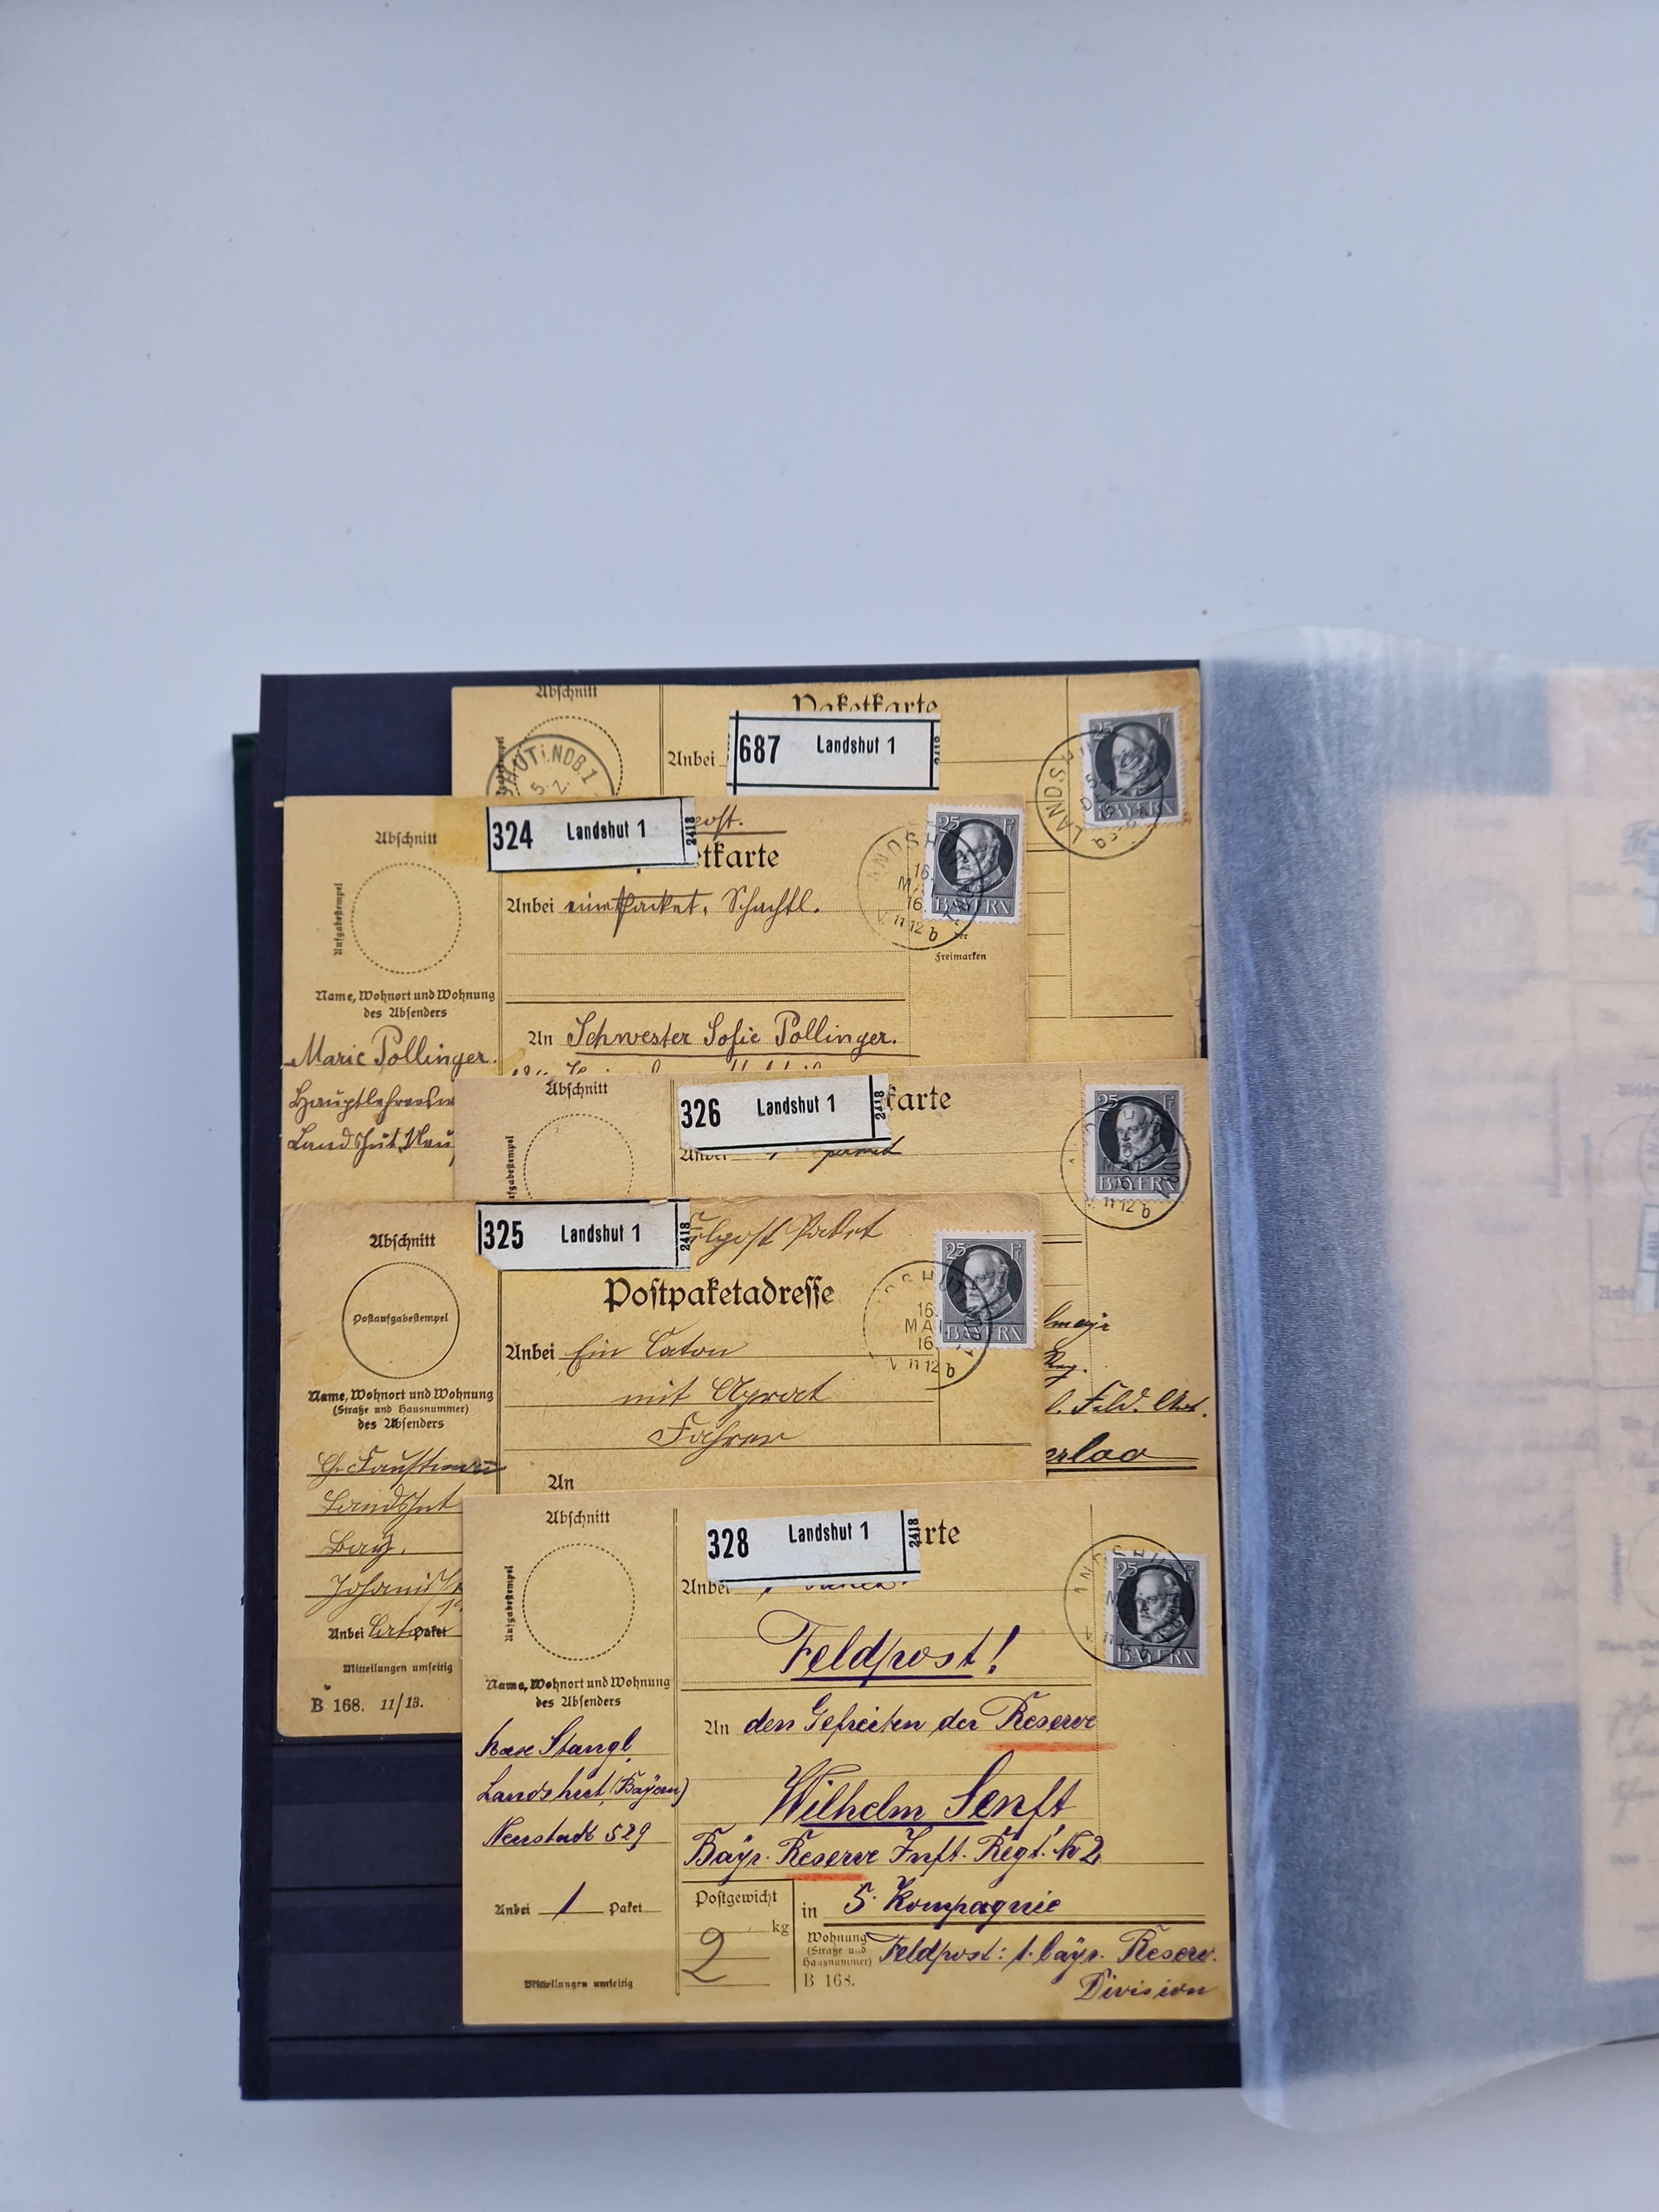 Abschnitt
Paketkarte
Anbei
687 Landshut 1
25 Pf
BAYERN
324 Landshut 1 2418
post.
etkarte
Abschnitt
Aufgabestempel
Anbei ein Packet, Schachtl.
25 Pf
BAYERN
16
11-12 b
Freimarken
Name, Wohnort und Wohnung
des Absenders
An Schwester Sofie Pollinger.
Marie Pollinger.
Hauptlehrers
Landshut
Abschnitt
326 Landshut 1 2418
karte
Aufgabestempel
Anbei
25 Pf
BAYERN
MAI
V. 11-12 b
325 Landshut 1 2418
Feldpost Paket
Abschnitt
Postaufgabestempel
Postpaketadresse
25 Pf
BAYERN
16
MAI
16
V. 11-12 b
Anbei Ein Caton
mit
Name, Wohnort und Wohnung
(Straße und Hausnummer)
des Absenders
An
Landshut
Bay.
Anbei Paket
Mitteilungen umseitig
B 168. 11/13.
l. Feld.
Abschnitt
328 Landshut 1 2418
rte
Aufgabestempel
Anbei
25 Pf
BAYERN
Feldpost!
Name, Wohnort und Wohnung
des Absenders
An den Gefreiten der Reserve
Stangl
Landshut (Bayern)
Neustadt 529
Wilhelm Senft
Bayr. Reserve Inft. Regt. No 2
Anbei 1 Paket
Postgewicht
2 kg
in 5. Kompagnie
Wohnung
(Straße und
Hausnummer)
Feldpost: 1. bayr. Reserv.
Division
B 168.
Mitteilungen umseitig